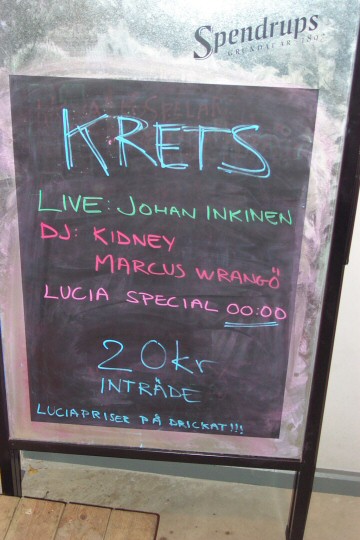 Spendrups
GRUNDAT ÅR 1897
KRETS
LIVE: JOHAN INKINEN
DJ: KIDNEY
MARCUS WRANGÖ
LUCIA SPECIAL 00:00
20kr
INTRÄDE
LUCIAPRISER PÅ DRICKAT!!!